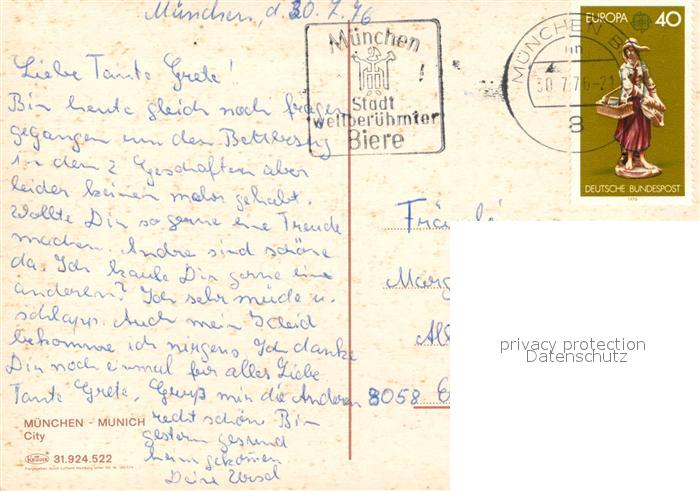 München, d. 30.7.76
Liebe Tante Grete!
Bin heute gleich noch fragen
gegangen um den Bettbezug
in den 2 Geschäften aber
leider keinen mehr gehabt.
Wollte Dir so gerne eine Freude
machen. Andre sind schöne
da. Ich kaufe Dir gerne eine
anderen? Ich sehr müde u.
schlapp. Auch mein Kleid
bekomme ich nirgens. Ich danke
Dir noch einmal für alles Liebe
Tante Grete. Gruß mir die Anderen
recht schön Bin
gestern gesund
heim gekommen
Deine
MÜNCHEN - MUNICH
City
Krüger 31.924.522
München
!
Stadt
weltberühmter
Biere
MÜNCHEN
30.7.76-21
8
EUROPA 40
DEUTSCHE BUNDESPOST
1976
Marg
8058
privacy protection
Datenschutz